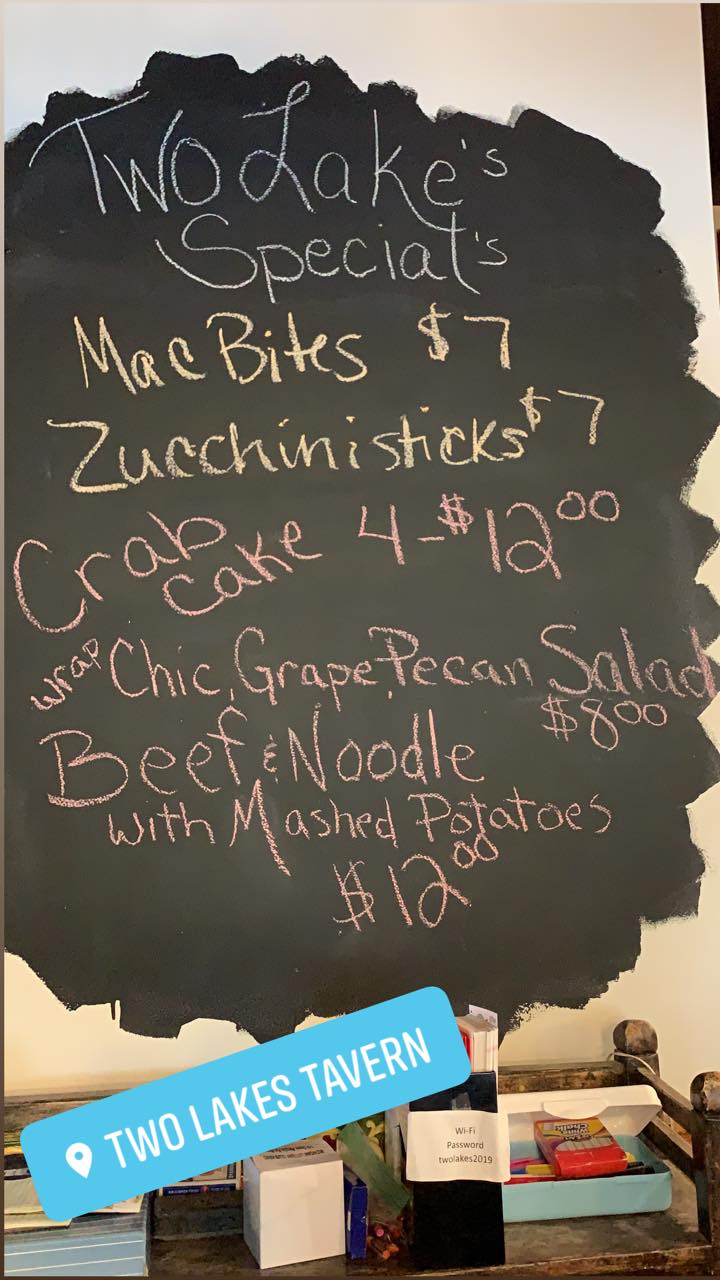 Two Lake's
Special's
Mac Bites $7
Zucchinisticks $7
Crab cake 4-$12.00
wrap Chic, Grape, Pecan Salad
$8.00
Beef & Noodle
with Mashed Potatoes
$12.00
TWO LAKES TAVERN
Wi-Fi
Password
twolakes2019